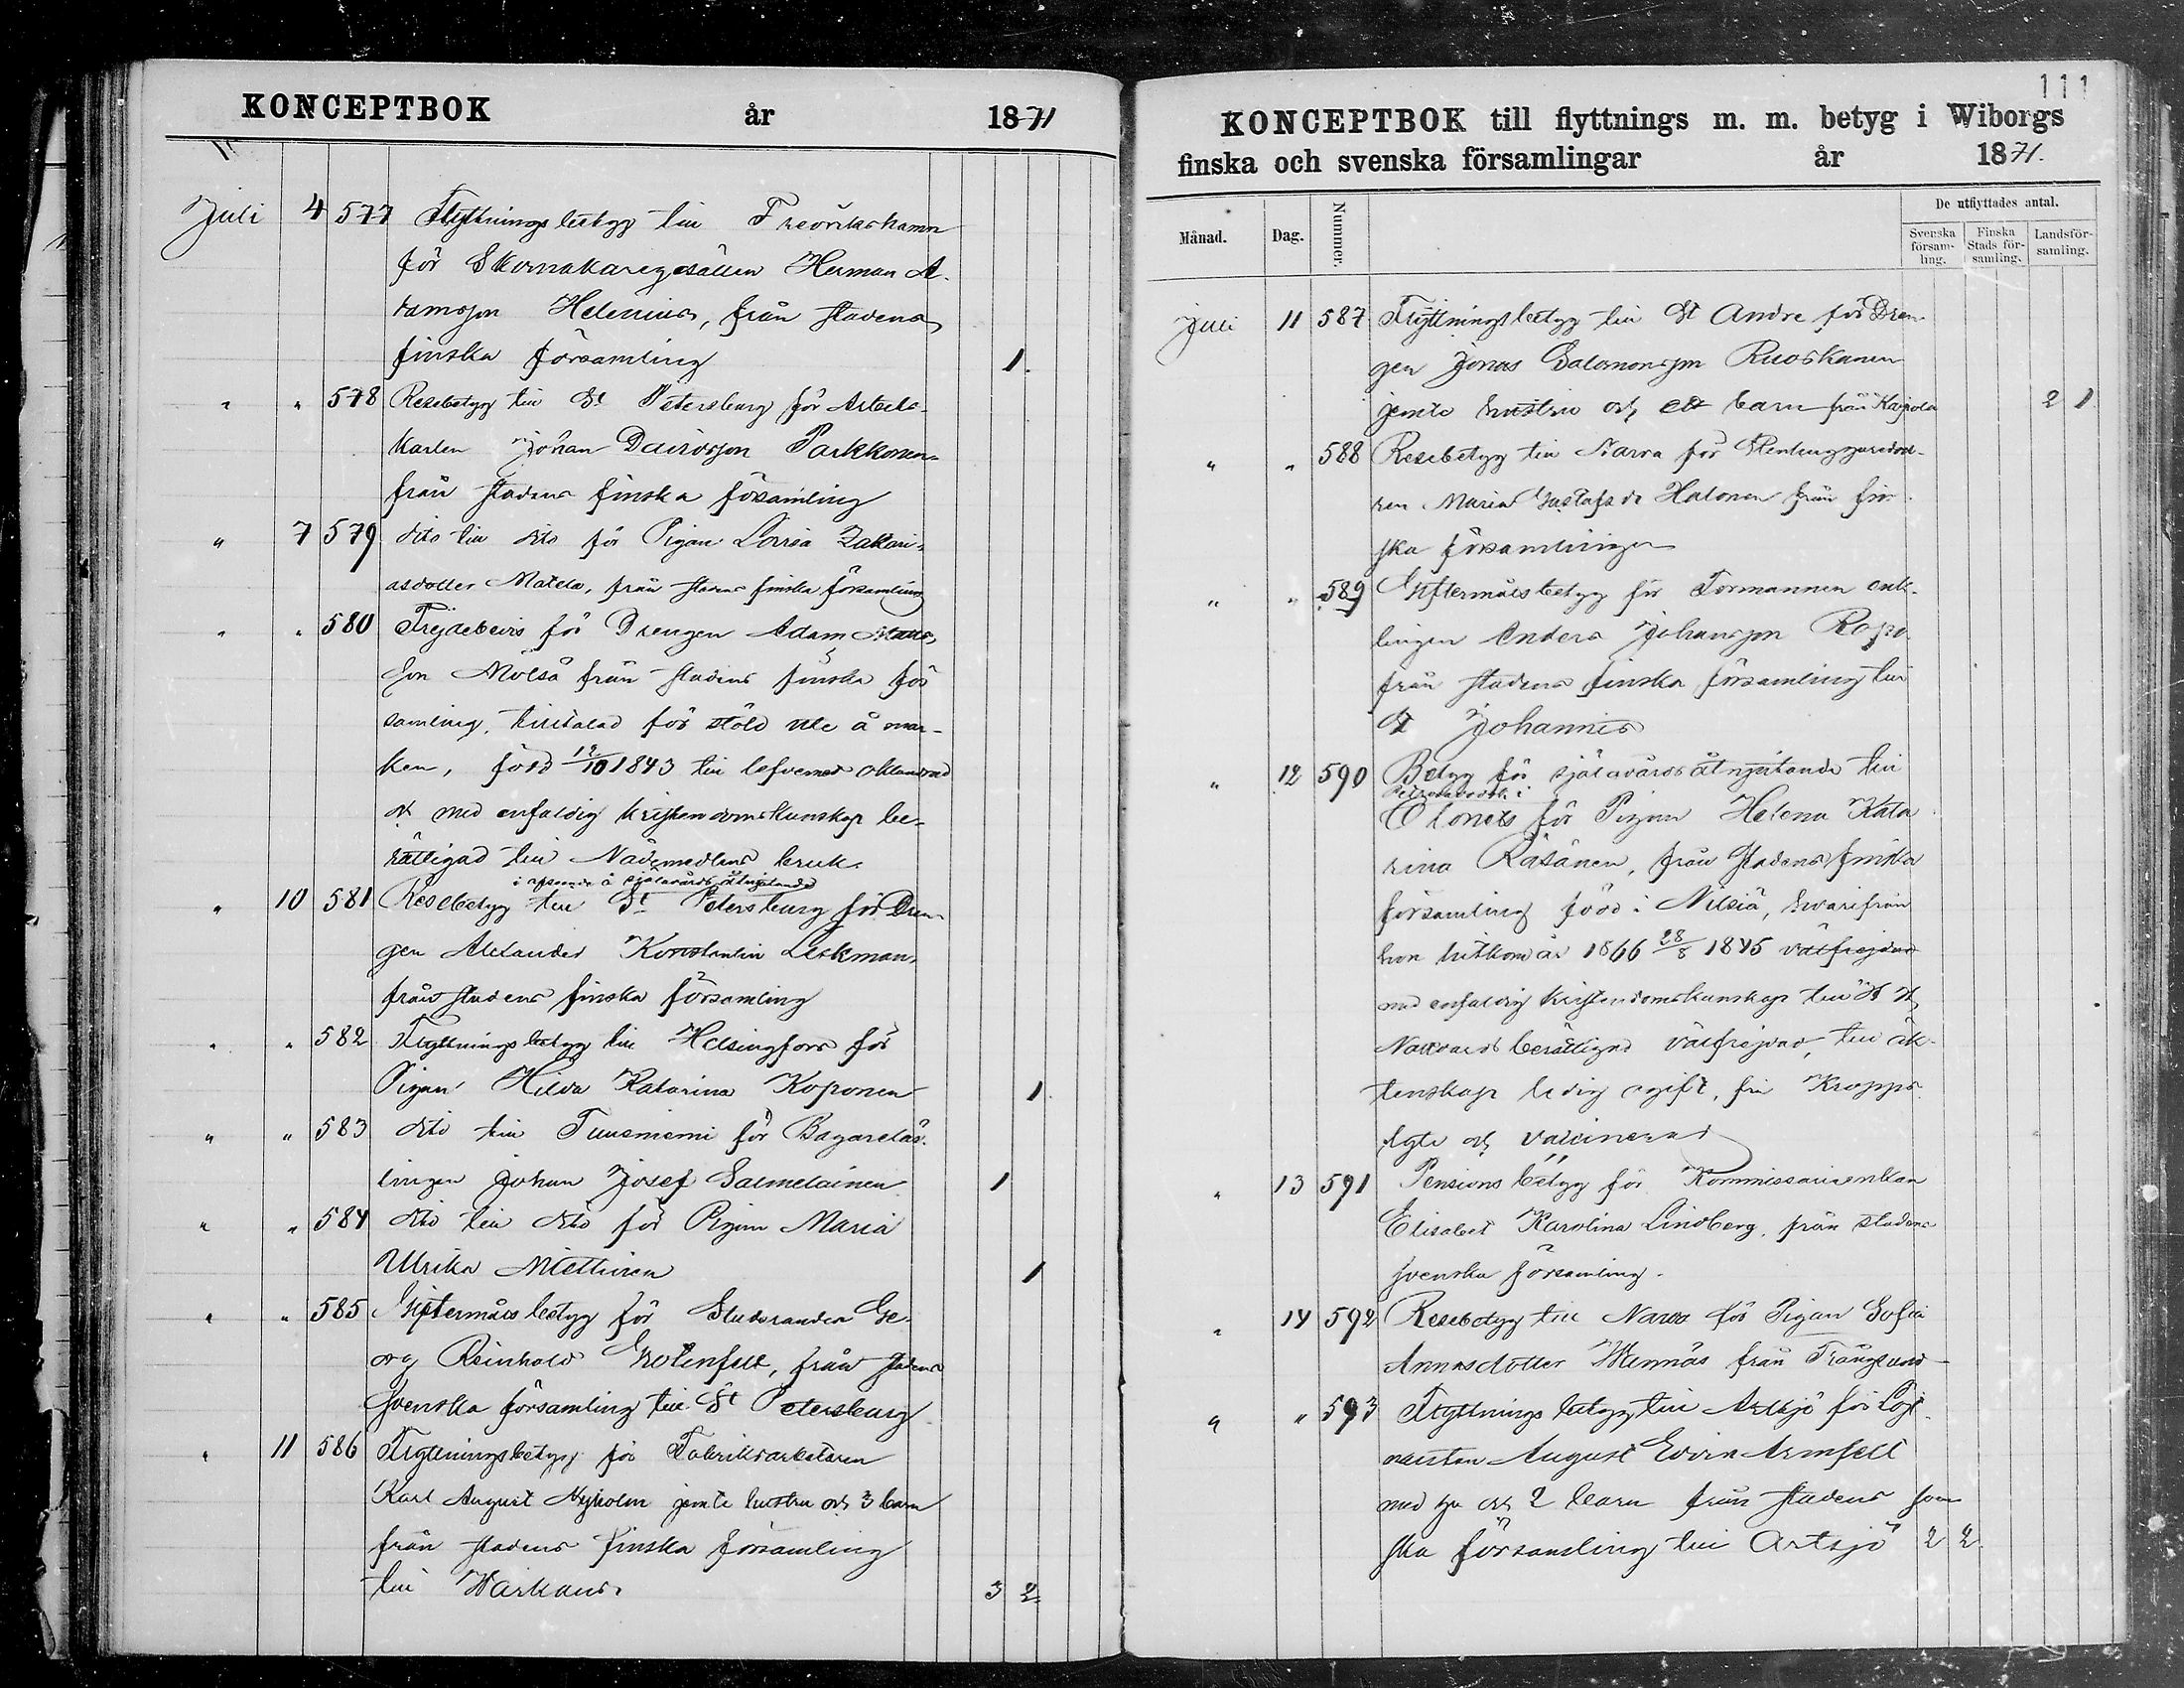 KONCEPTBOK år 1871
Juli 4 577 Flyttningsbetyg till Fredrikshamn
för Skomakaregesällen Herman A-
damsson Helenius, från stadens
finska församling 1.
" " 578 Resebetyg till St Petersburg för Arbets-
karlen Johan Davidsson Parkkonen
från stadens finska församling
" 7 579 dito till dito för Pigan Lovisa Zakari-
asdotter Matela, från stadens finska församling
" " 580 Frejdebevis för Drengen Adam Mats-
son Mölsä från stadens finska för
samling, tilltalad för stöld ute å mar-
ken, född 12/10 1843 till lefvernet oklandrad
och med enfaldig kristendomskunskap be-
rättigad till Nådemedlens bruk.
i afseende å själavårds åtnjutande
" 10 581 Resebetyg till St Petersburg för Dren-
gen Alexander Konstantin Leskman
från stadens finska församling
" " 582 Flyttningsbetyg till Helsingfors för
Pigan Hilda Katarina Koponen 1.
" " 583 dito till Tuusniemi för Bagarelär-
lingen Johan Josef Salmelainen 1
" " 584 dito till dito för Pigan Maria
Ulrika Miettinen 1
" " 585 Giftermålsbetyg för Studeranden Ge-
org Reinhold Grotenfelt, från stadens
svenska församling till St Petersburg
" 11 586 Flyttningsbetyg för Fabriksarbetaren
Karl August Nyholm jemte hustru och 3 barn
från stadens finska församling
till Warkaus. 3 2.
111
KONCEPTBOK till flyttnings m. m. betyg i Wiborgs
finska och svenska församlingar år 1871.
Månad. Dag. Nummer. De utflyttades antal.
Svenska församling. Finska Stads församling. Landsförsamling.
Juli 11 587 Flyttningsbetyg till St Andre för Dren-
gen Jonas Salomonsson Ruoskanen
jemte hustru och ett barn från Kaipola 2 1
" " 588 Resebetyg till Narva för
Maria Gustafsdr Halonen från fin-
ska församlingen
" " 589 Giftermålsbetyg för Formannen enk-
lingen Anders Johansson Ropo
från stadens finska församling till
St Johannis
" 12 590 Betyg för själavårds åtnjutande till
Petrosavodsk i
Olonets för Pigan Helena Kata
rina Räsänen, från stadens finska
församling född i Nilsiä, hvarifrån
hon hitkom år 1866 28/8 1845 välfrejdad
med enfaldig kristendomskunskap till H. H.
Nattvard berättigad välfrejdad, till äk-
tenskap ledig ogift, fri Kropps
lyte och vaccinerad
" 13 591 Pensionsbetyg för Kommissarieenkan
Elisabet Karolina Lindberg, från stadens
svenska församling.
" 14 592 Resebetyg till Narva för Pigan Sofia
Annasdotter Wennäs från Trångsund
" " 593 Flyttningsbetyg till Artsjö för Löjt-
nanten August Edvin Armfelt
med fru och 2 barn från stadens sven
ska församling till Artsjö 2 2.